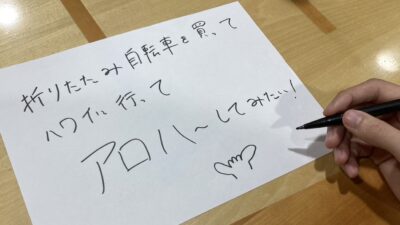 折りたたみ自転車を買って
ハワイに行って
アロハ〜してみたい!